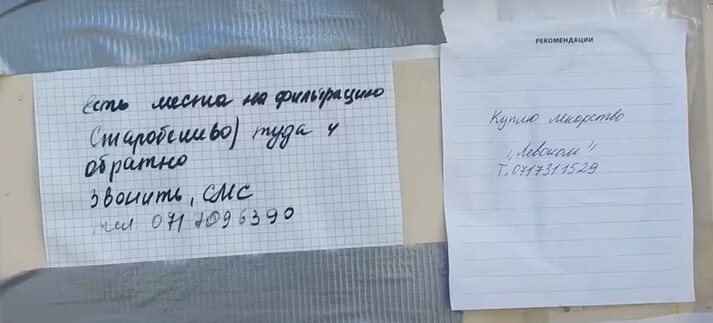 Есть места на фильтрацию
Старобешево) туда и
обратно
Звонить, СМС
тел 071
РЕКОМЕНДАЦИИ
Куплю лекарство
"Левоком"
Т. 0717311529